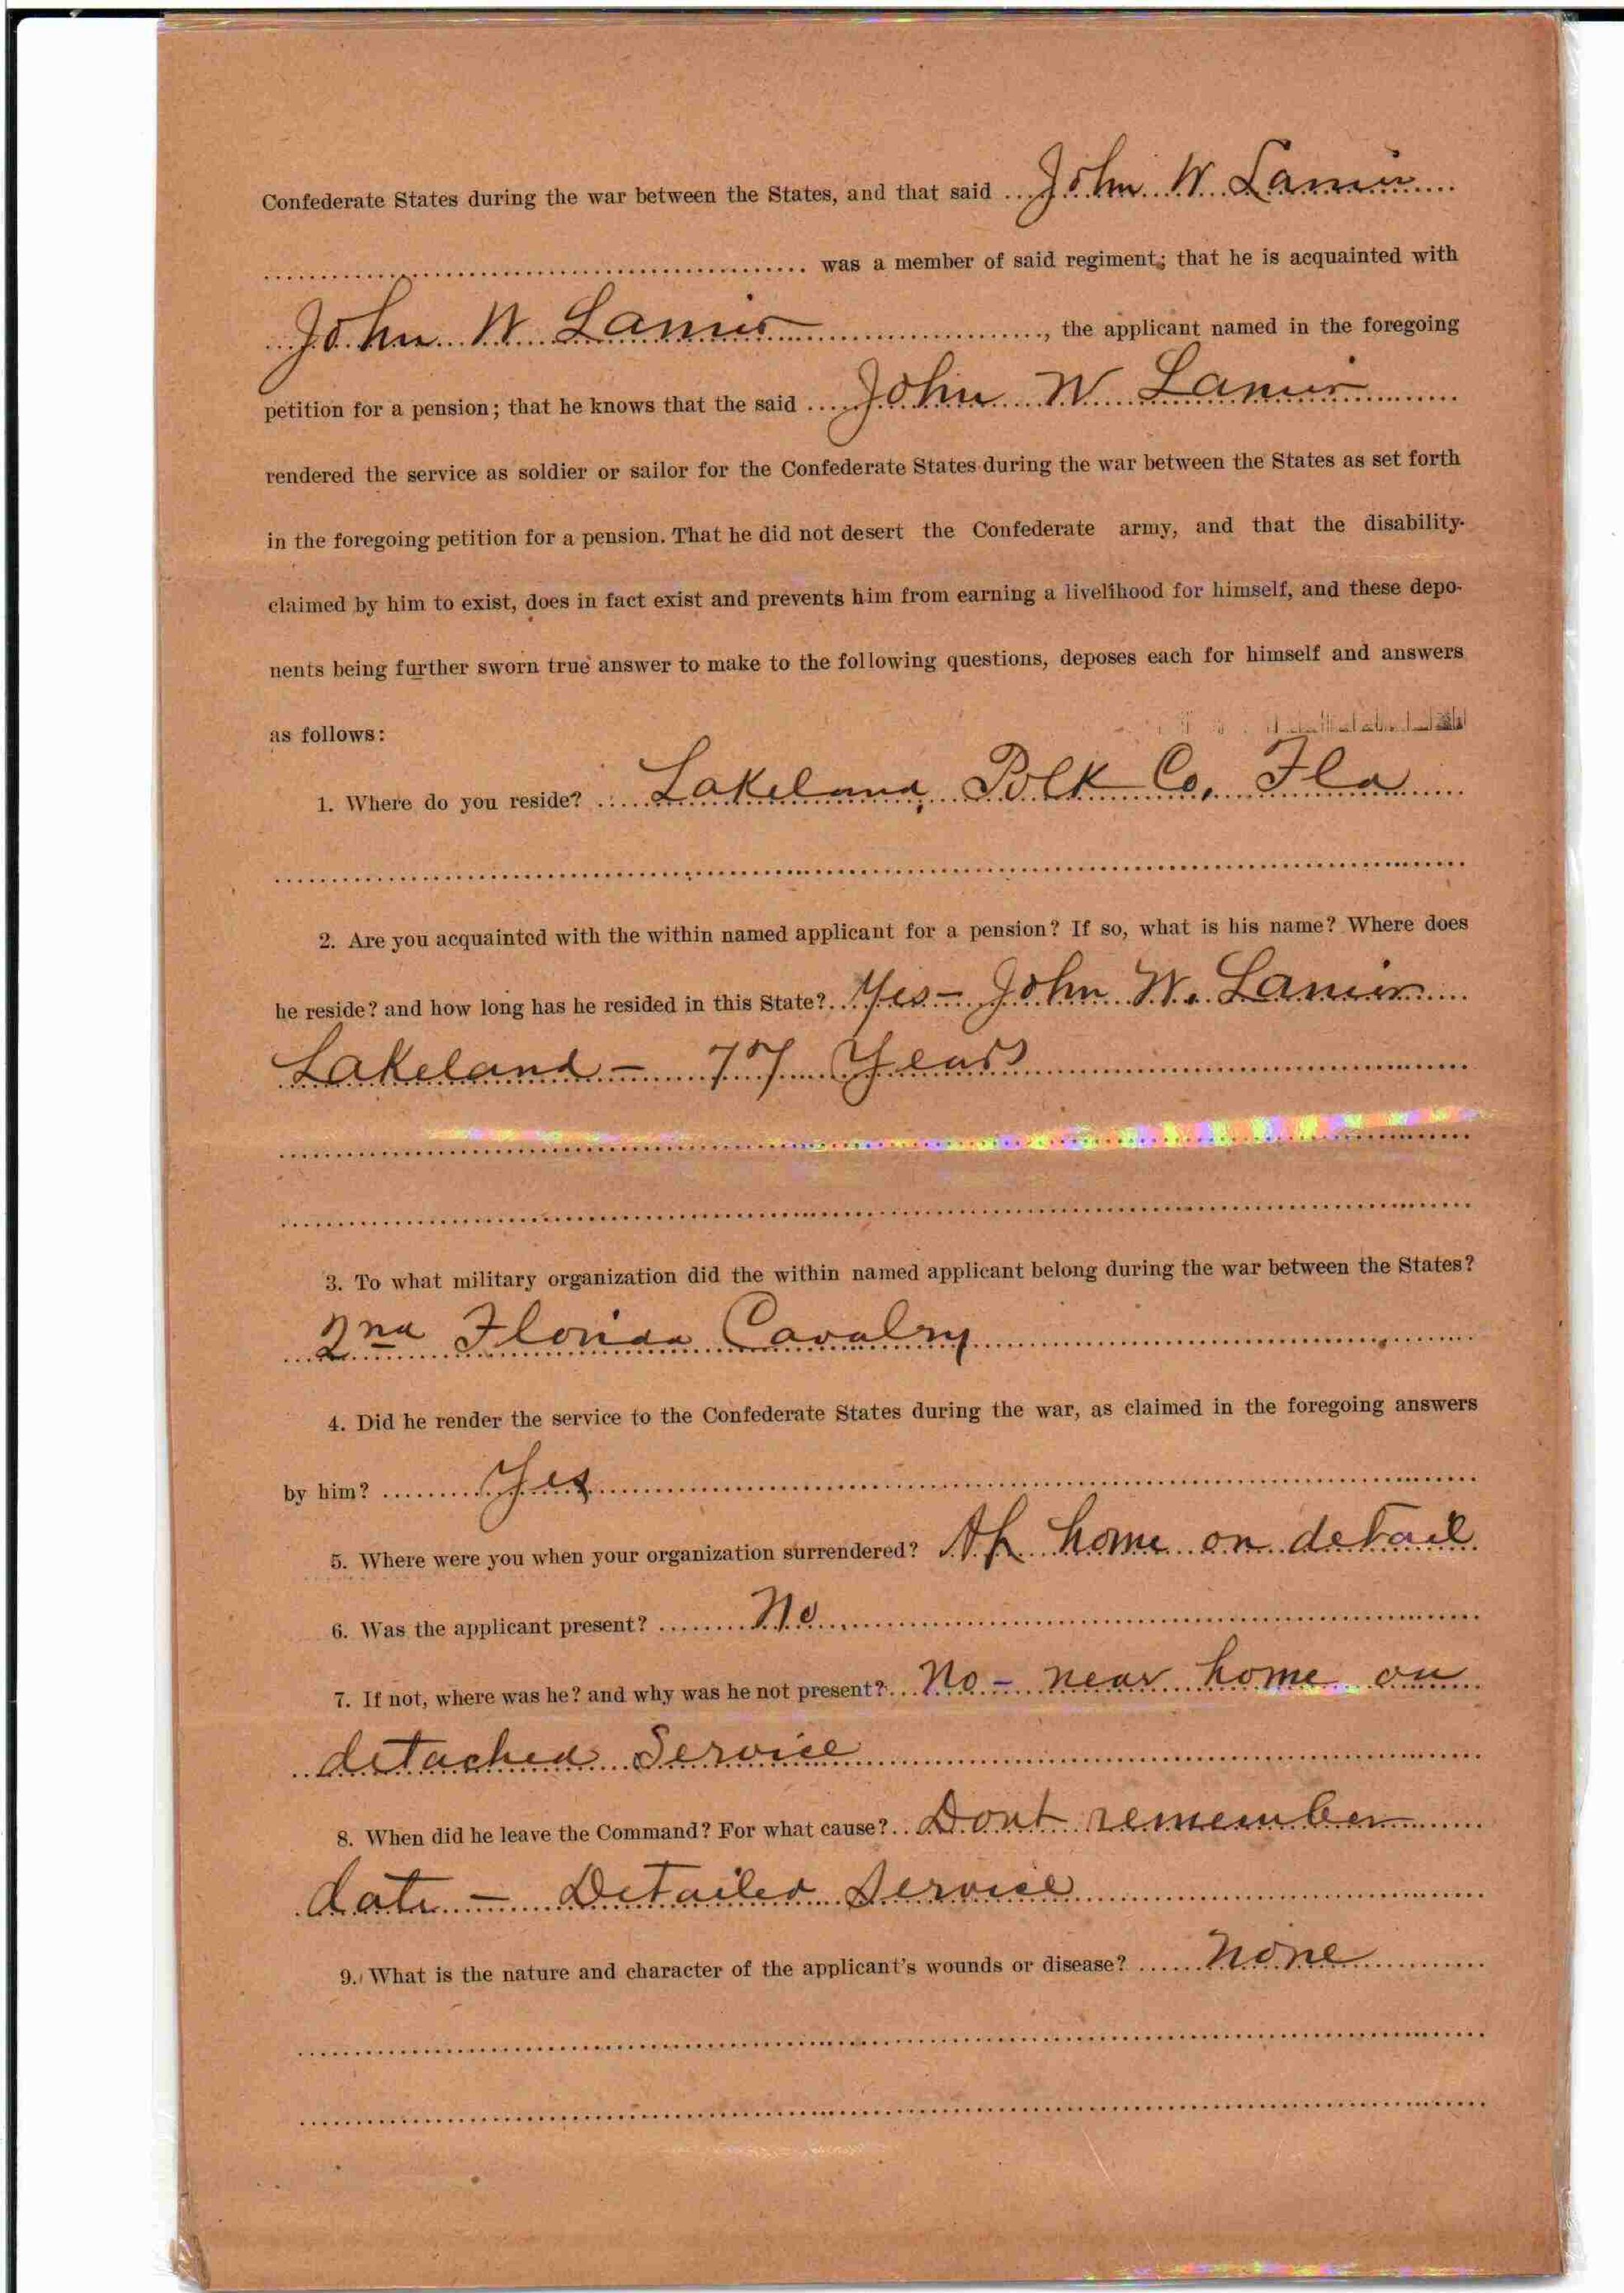 Confederate States during the war between the States, and that said John W. Lanier
was a member of said regiment; that he is acquainted with
John W Lanier, the applicant named in the foregoing
petition for a pension; that he knows that the said John W Lanier
rendered the service as soldier or sailor for the Confederate States during the war between the States as set forth
in the foregoing petition for a pension. That he did not desert the Confederate army, and that the disability
claimed by him to exist, does in fact exist and prevents him from earning a livelihood for himself, and these depo-
nents being further sworn true answer to make to the following questions, deposes each for himself and answers
as follows:
1. Where do you reside? Lakeland, Polk Co, Fla
2. Are you acquainted with the within named applicant for a pension? If so, what is his name? Where does
he reside? and how long has he resided in this State? Yes – John W. Lanier
Lakeland – 77 Years
3. To what military organization did the within named applicant belong during the war between the States?
2nd Florida Cavalry
4. Did he render the service to the Confederate States during the war, as claimed in the foregoing answers
by him? Yes
5. Where were you when your organization surrendered? At home on detail
6. Was the applicant present? No
7. If not, where was he? and why was he not present? No – near home on
detached Service
8. When did he leave the Command? For what cause? Dont remember
date – Detailed Service
9. What is the nature and character of the applicant's wounds or disease? none